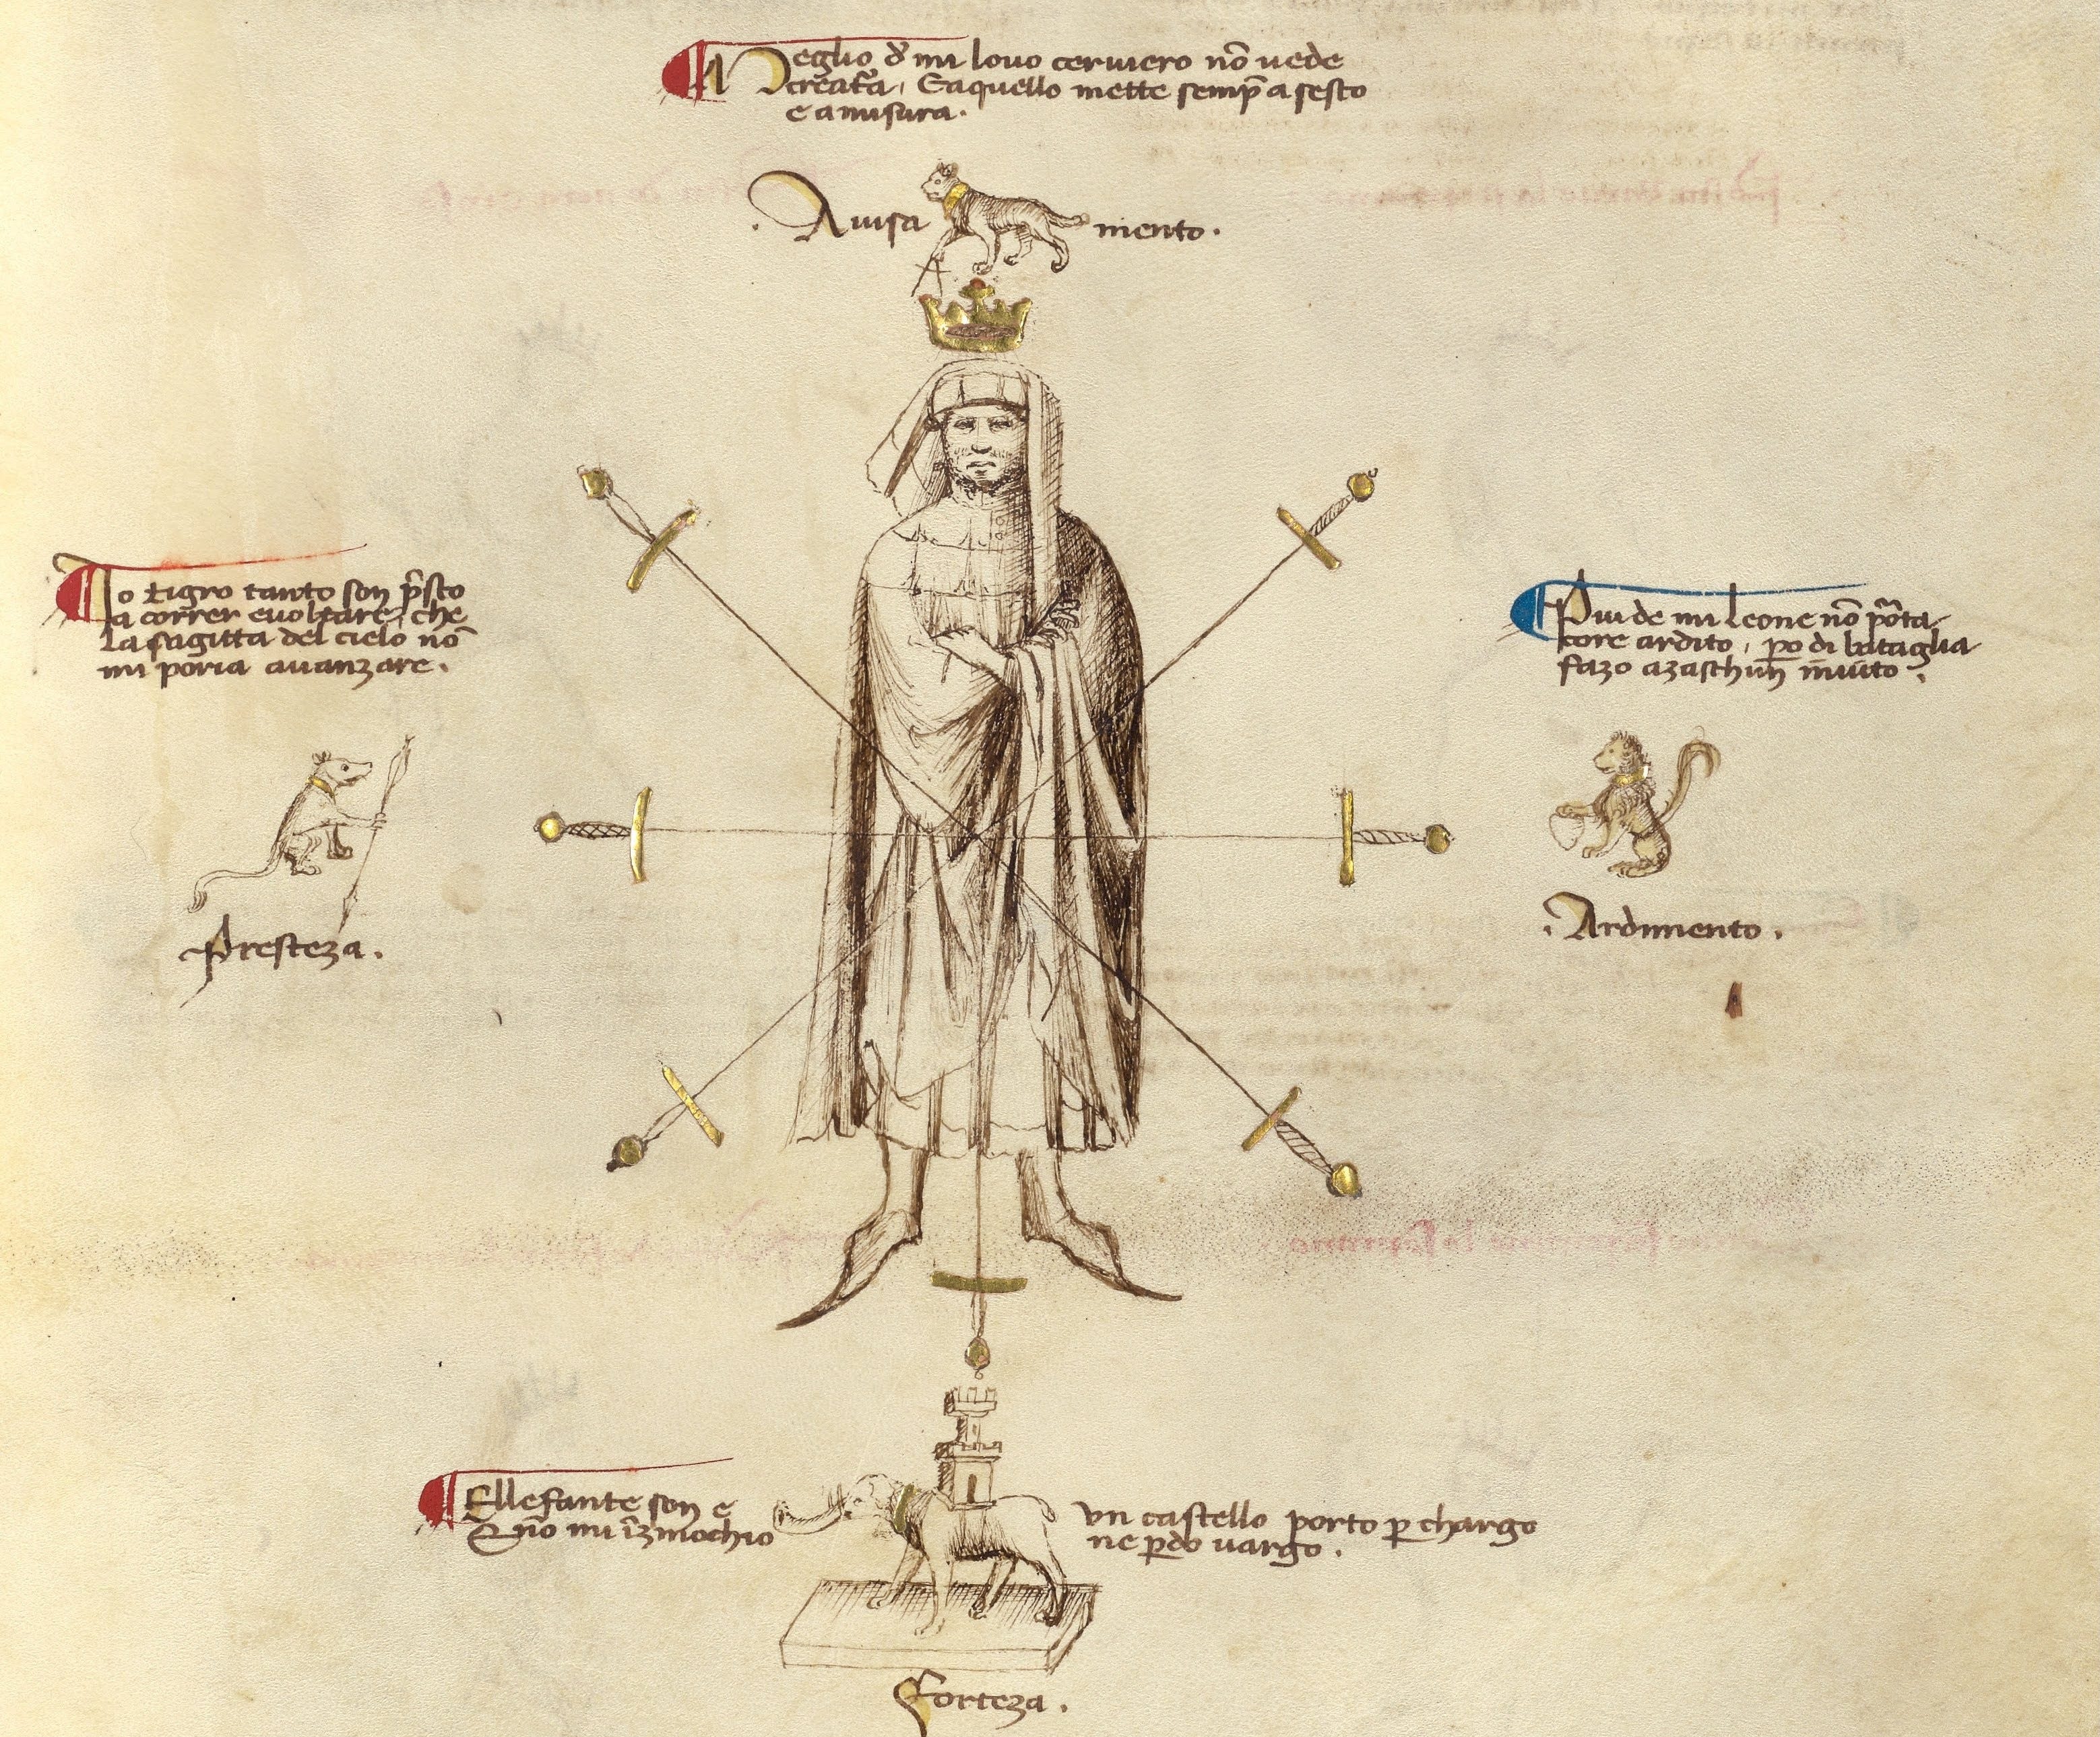 Meglio de mi lovo cerviero nō vede
creat'a, E aquello mette semp̄ a sesto
e a misura.
Avisa mento.
Io tigro tanto son p̄sto
a correr e voltare, che
la sagitta del cielo nō
mi poria avanzare.
Presteza.
Più de mi leone nō porta
core ardito, p̄o di bataglia
fazo a zaschun̄ invito.
Ardimento.
Ellefante son e un castello porto p̱ chargo
E nō mi īzinochio ne p̱do vargo.
Forteza.